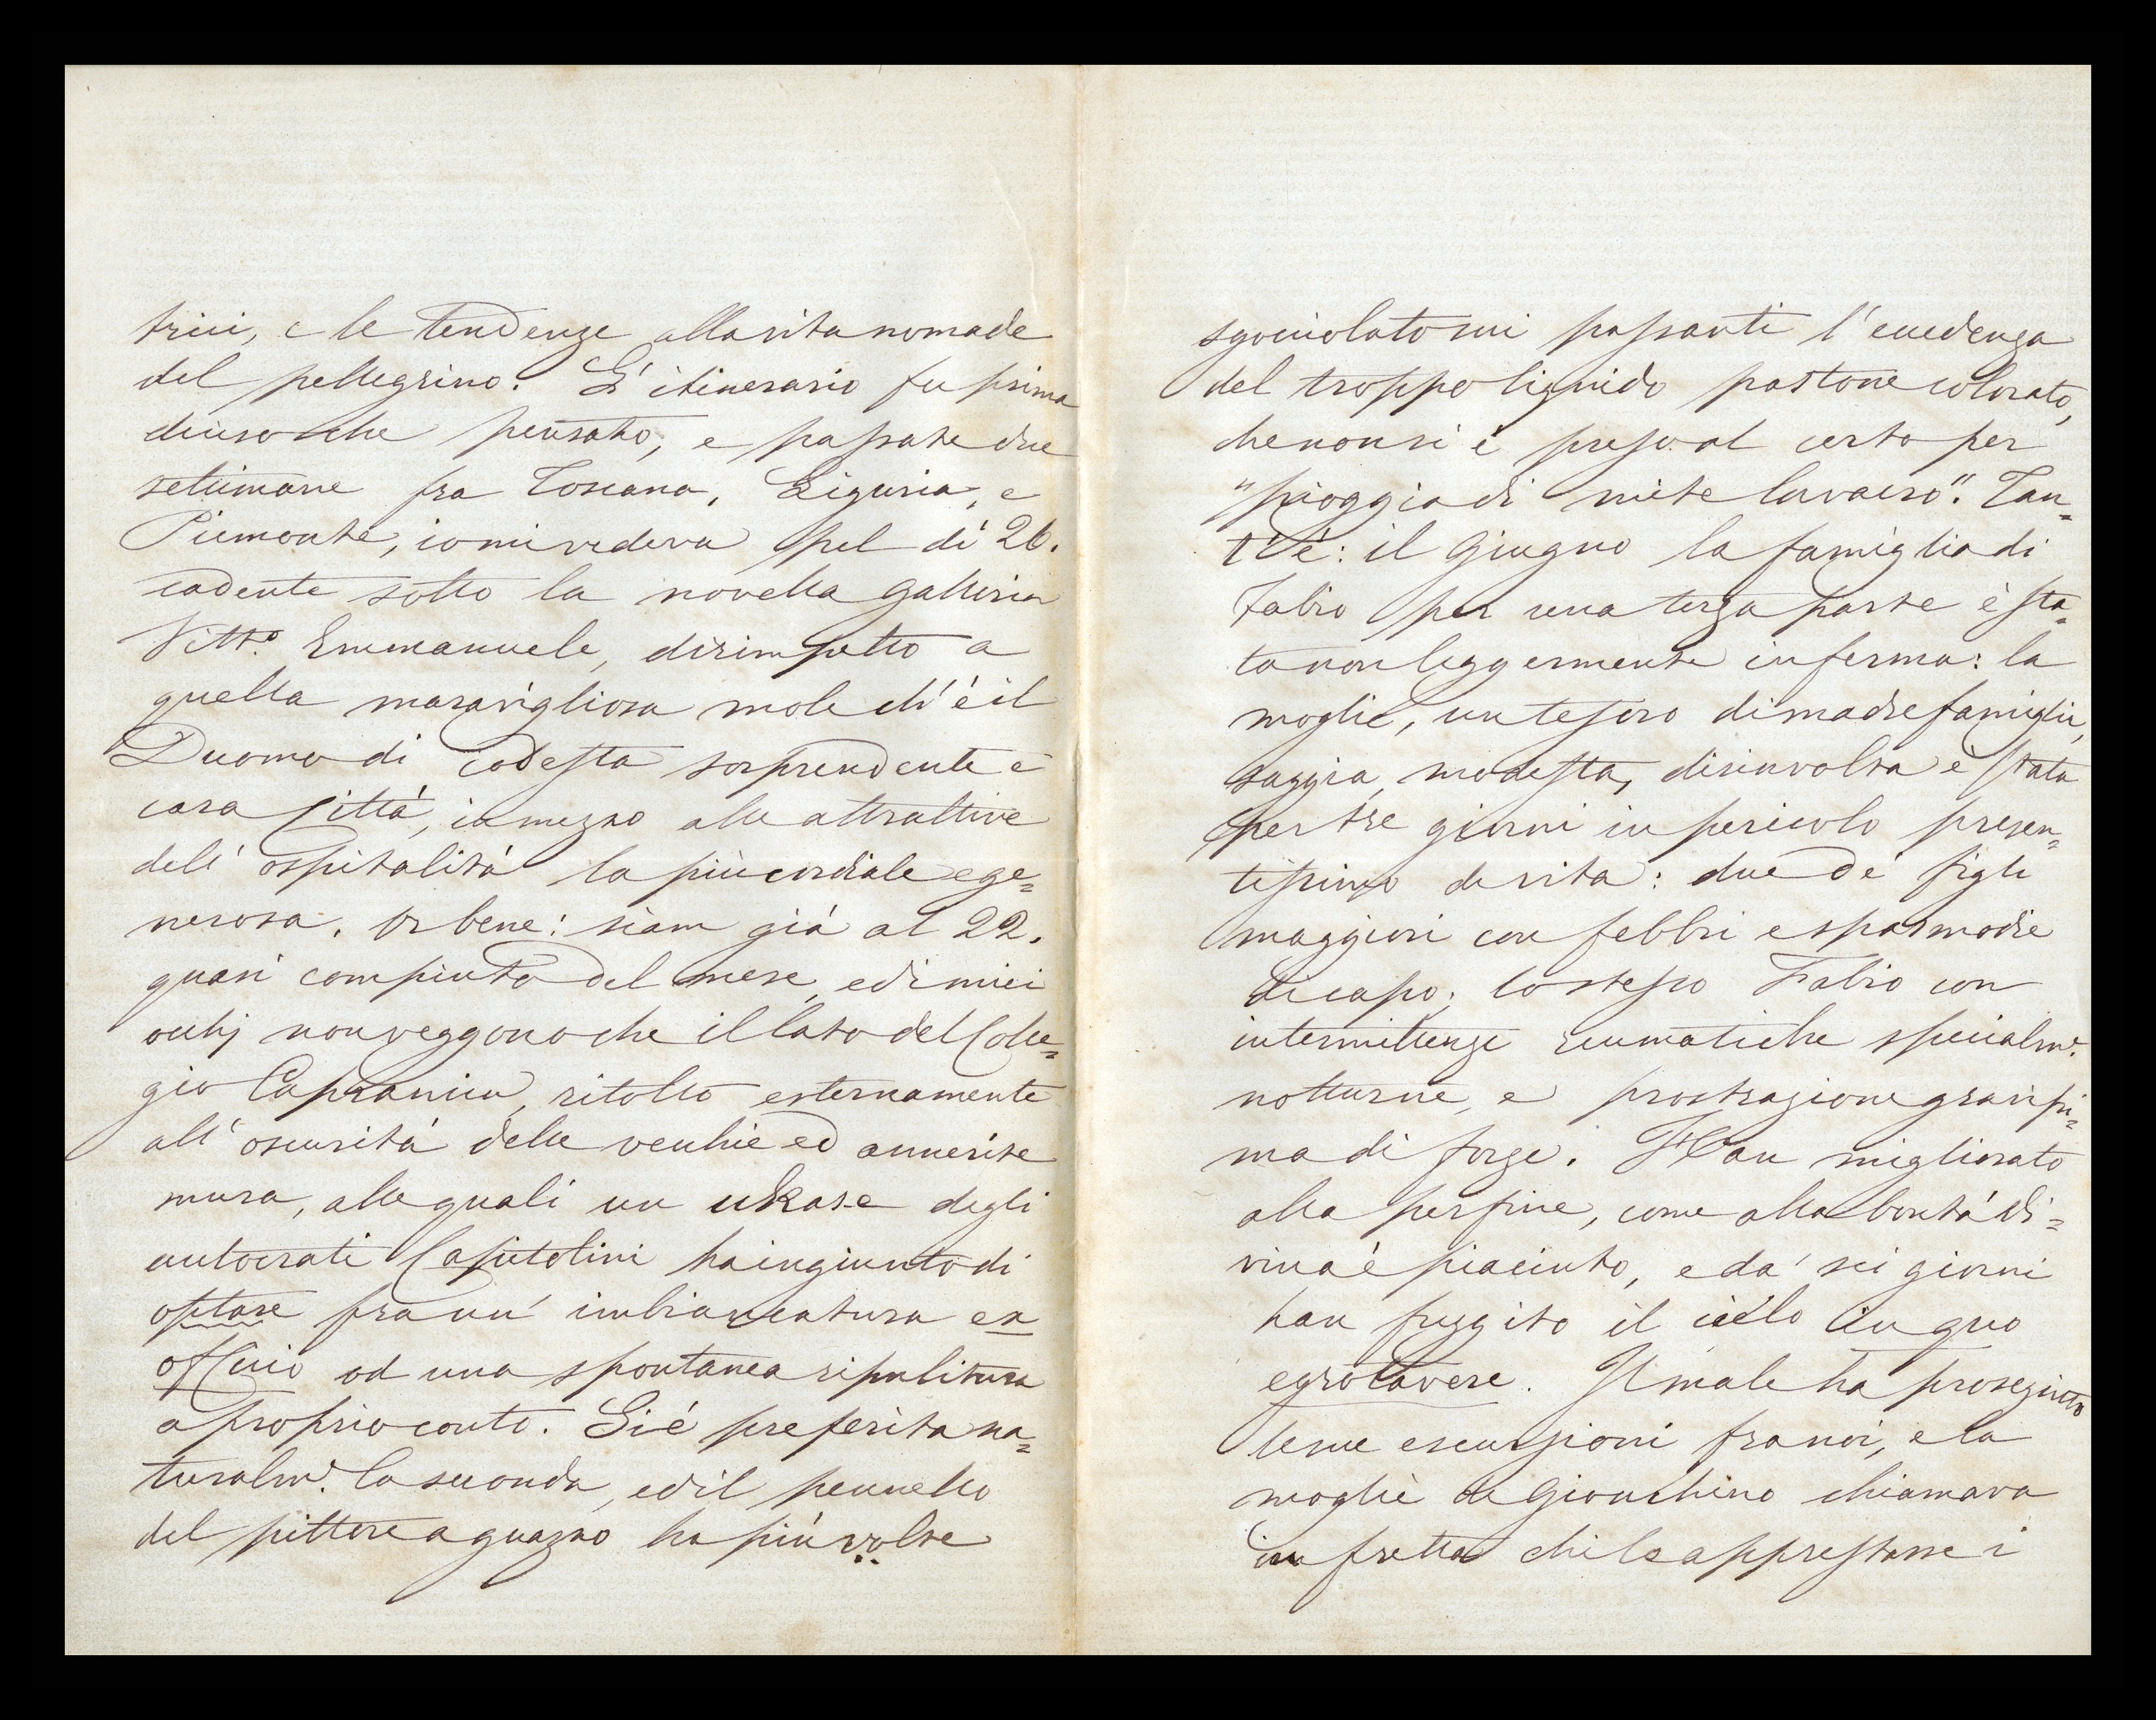 trici, e le tendenze alla vita nomade
del pellegrino. L'itinerario fu prima
deciso che pensato, e passate due
settimane fra Toscana, Liguria, e
Piemonte, io mi vedeva pel dì 26.
cadente sotto la novella galleria
Vitt.º Emmanuele, dirimpetto a
quella maravigliosa mole ch'è il
Duomo di codesta sorprendente e
cara Città, in mezzo alle attrattive
dell'ospitalità la più cordiale e ge=
nerosa. Or bene: siam già al 22.
quasi compiuto del mese, ed i miei
occhj non veggono che il lato del Colle=
gio Capranica, ritolto esternamente
all'oscurità delle vecchie ed annerite
mura, alle quali un ukase degli
autocrati Capitolini ha ingiunto di
optare fra un' imbiancatura ex
officio od una spontanea ripulitura
a proprio conto. Si è preferita na=
turalm. la seconda, ed il pennello
del pittore a guazzo ha più volte
sgocciolato sui passanti l'eccedenza
del troppo liquido pastone colorato,
che non si è preso al certo per
"pioggia di mite lavacro". Tan=
t'è: il Giugno la famiglia di
Fabio per una terza parte è sta=
ta non leggermente inferma: la
moglie, un tesoro di madrefamiglia,
saggia, modesta, disinvolta è stata
per tre giorni in pericolo presen=
tissimo di vita: due de' figli
maggiori con febbri e spasmodie
di capo; lo stesso Fabio con
intermittenze reumatiche specialm.
notturne, e prostrazione gravissi=
ma di forze. Han migliorato
alla perfine, come alla bontà di=
vina è piaciuto, e da' sei giorni
han fuggito il cielo in quo
egrotavere. Il male ha proseguito
le sue escursioni fra noi, e la
moglie di Gioacchino chiamava
in fretta chi le apprestasse i